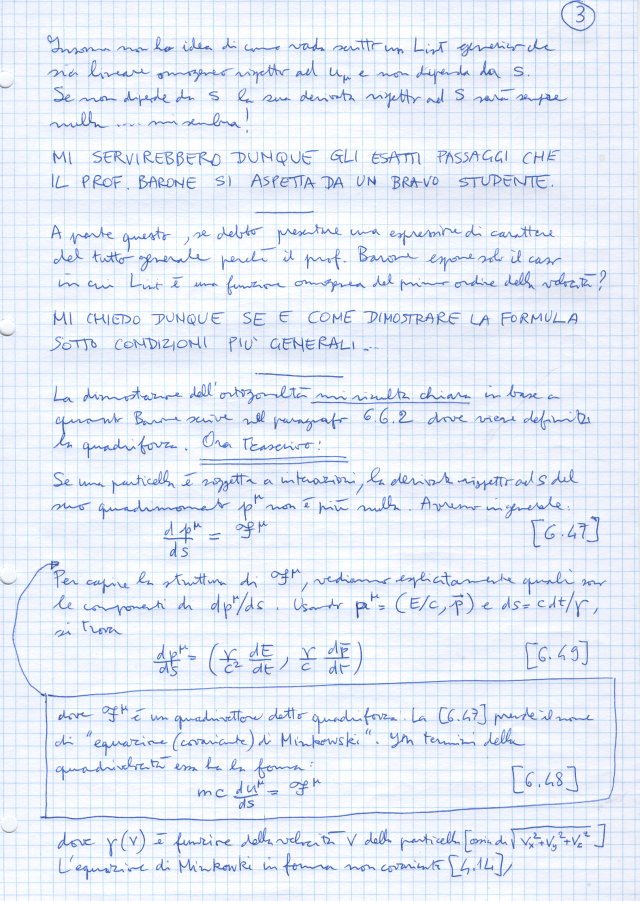 3
Insomma non ho idea di come vada scritto un Lint generico che
sia lineare omogeneo rispetto ad uμ e non dipenda da s.
Se non dipende da s la sua derivata rispetto ad s sarà sempre
nulla .... mi sembra!
MI SERVIREBBERO DUNQUE GLI ESATTI PASSAGGI CHE
IL PROF. BARONE SI ASPETTA DA UN BRAVO STUDENTE.
A parte questo, se debbo presentare una espressione di carattere
del tutto generale perché il prof. Barone espone solo il caso
in cui Lint è una funzione omogenea del primo ordine della velocità?
MI CHIEDO DUNQUE SE E COME DIMOSTRARE LA FORMULA
SOTTO CONDIZIONI PIU' GENERALI...
La dimostrazione dell'ortogonalità mi risulta chiara in base a
quanto Barone scrive nel paragrafo 6.6.2 dove viene definita
la quadriforza. Ora trascrivo:
Se una particella è soggetta a interazioni, la derivata rispetto ad s del
suo quadrimomento p^μ non è più nulla. Avremo in generale:
dp^μ/ds = ℱ^μ [6.47]
Per capire la struttura di ℱ^μ, vediamo esplicitamente quali sono
le componenti di dp^μ/ds. Usando p^μ = (E/c, p⃗) e ds = c dt/γ,
si trova
dp^μ/ds = (γ/c² dE/dt, γ/c dp⃗/dt) [6.49]
dove ℱ^μ è un quadrivettore detto quadriforza. La [6.47] prende il nome
di "equazione (covariante) di Minkowski". In termini della
quadrivelocità essa ha la forma:
mc du^μ/ds = ℱ^μ [6.48]
dove γ(v) è funzione della velocità v della particella [ossia di √(vx²+vy²+vz²)]
L'equazione di Minkowki in forma non covariante [4.14],